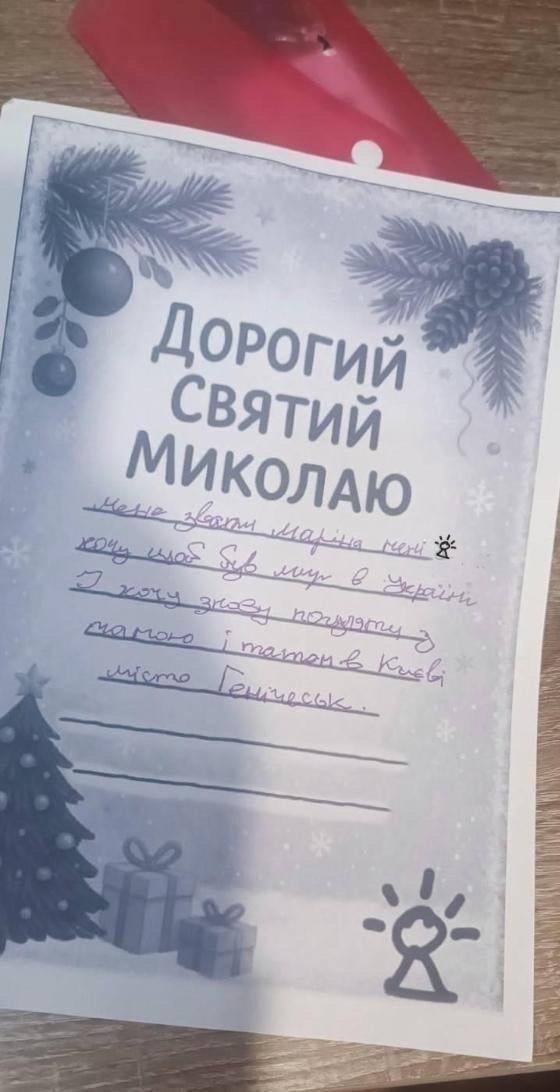 ДОРОГИЙ
СВЯТИЙ
МИКОЛАЮ
мене звати Маріна мені
хочу щоб був мир в Україні
І хочу знову погуляти з
мамою і татом в Києві
місто Генічеськ.